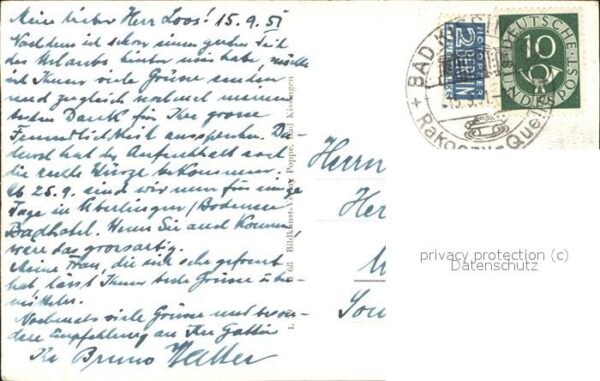 Mein lieber Herr Loos! 15.9.51
Nachdem ich schon einen guten Teil
des Urlaubs hinter mir habe, möchte
ich Ihnen viele Grüsse senden
und zugleich nochmal meinen
besten Dank für Ihre grosse
Freundlichkeit aussprechen. Da-
durch hat der Aufenthalt erst
die rechte Würze bekommen.
Ab 25.9. sind wir nun für einige
Tage in Überlingen/Bodensee
Badhotel. Wenn Sie auch kommen,
wäre das grossartig.
Meine Frau, die sich sehr gefreut
hat, lässt Ihnen beste Grüsse über-
mitteln.
Nochmals viele Grüsse und beson-
dere Empfehlung an Ihre Gattin
Ihr Bruno Walter
B 68 Bildkunst-Verlag Poppe, Bad Kissingen
NOTOPFER
2 BERLIN
STEUERMARKE
DEUTSCHE
10
BUNDESPOST
BAD KISSINGEN
Rakoczy-Quelle
Herrn
He
Sou
privacy protection (c)
Datenschutz